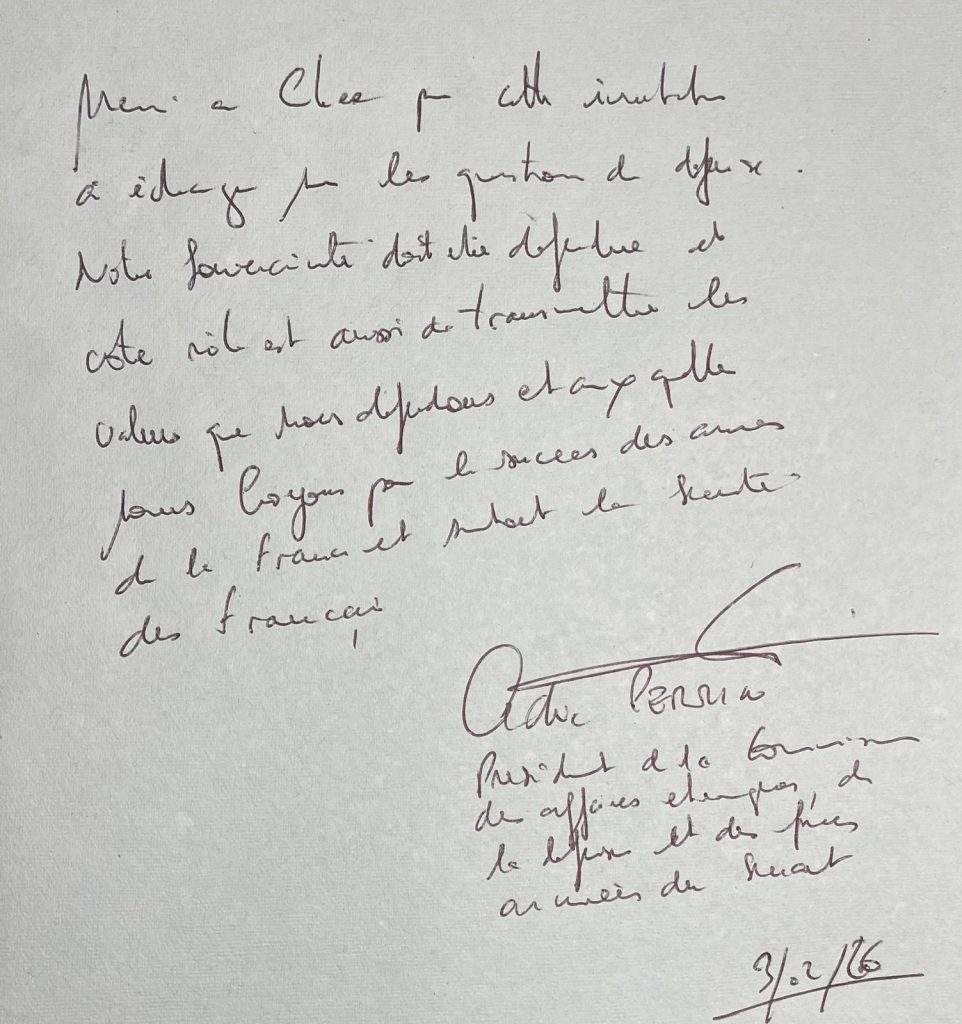 Merci à pour cette invitation
à échanger sur les questions de défense.
Notre souveraineté doit être défendue et
votre rôle est aussi de transmettre les
valeurs que nous défendons et auxquelles
nous croyons pour le succès des armes
de la France et surtout la sécurité
des Français
Cédric PERRIN
Président de la Commission
des affaires étrangères, de
la défense et des forces
armées du Sénat
3/02/26